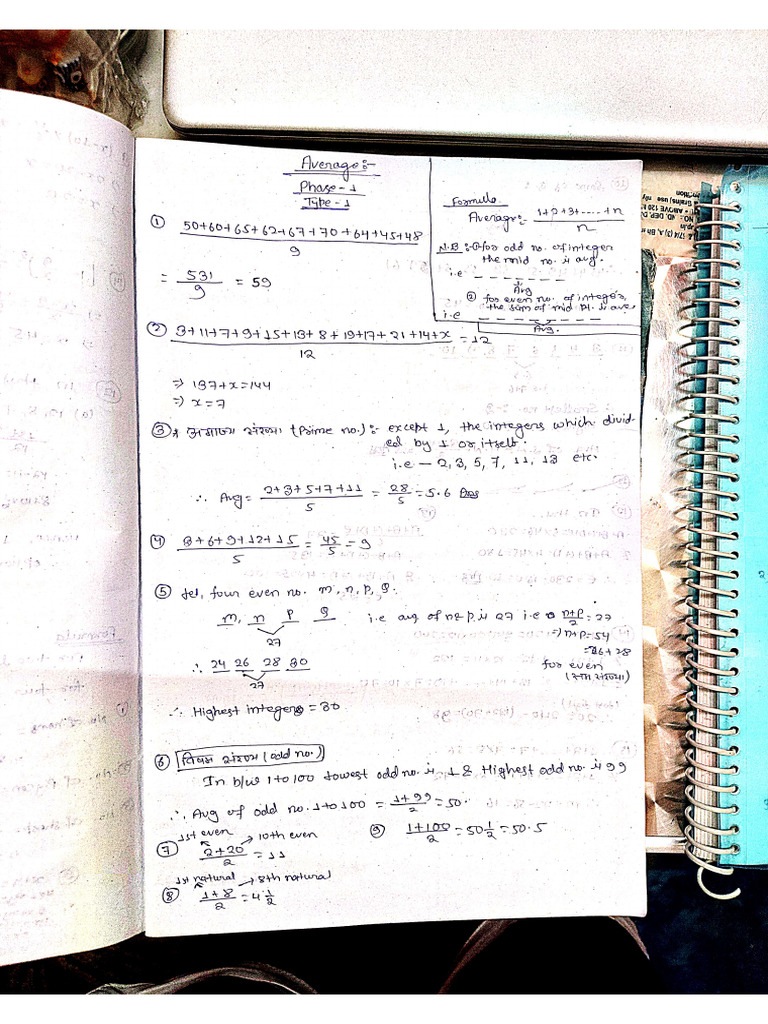 Average:-
Phase-1
Type-1
Formula
Average:- 1+2+3+.....+n / n
N.B:- ① for odd no. of integer
the mid no. is avg.
i.e _ _ _ _ _ _ _ _
Avg
② for even no. of integer,
the sum of mid pt. is ave
i.e _ _ _ _ _ _ _ _
Avg.
① 50+60+65+62+67+70+64+45+48 / 9
= 531/9 = 59
② 3+11+7+9+15+13+8+19+17+21+14+x / 12 = 12
⇒ 137+x=144
⇒ x=7
③ अभाज्य संख्या (Prime no.):- except 1, the integers which divid-
ed by 1 or itself.
i.e — 2, 3, 5, 7, 11, 13 etc.
∴ Avg = 2+3+5+7+11 / 5 = 28/5 = 5.6
④ 3+6+9+12+15 / 5 = 45/5 = 9
⑤ let, four even no. m, n, p, q.
m, n p q i.e avg of n & p is 27 i.e n+p/2 = 27
27 ⇒ n+p=54
=26+28
∴ 24 26 28 30 for even
27 (सम संख्या)
∴ Highest integer = 30
⑥ विषम संख्या (odd no.)
In b/w 1 to 100 lowest odd no. is 1 & Highest odd no. is 99
∴ Avg of odd no. 1 to 100 = 1+99/2 = 50.
1st even → 10th even
⑦ 2+20/2 = 11
⑨ 1+100/2 = 50 1/2 = 50.5
1st natural → 8th natural
⑧ 1+8/2 = 4 1/2